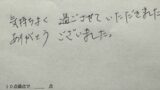 気持ちよく 過ごさせて いただきました
ありがとう ございました。